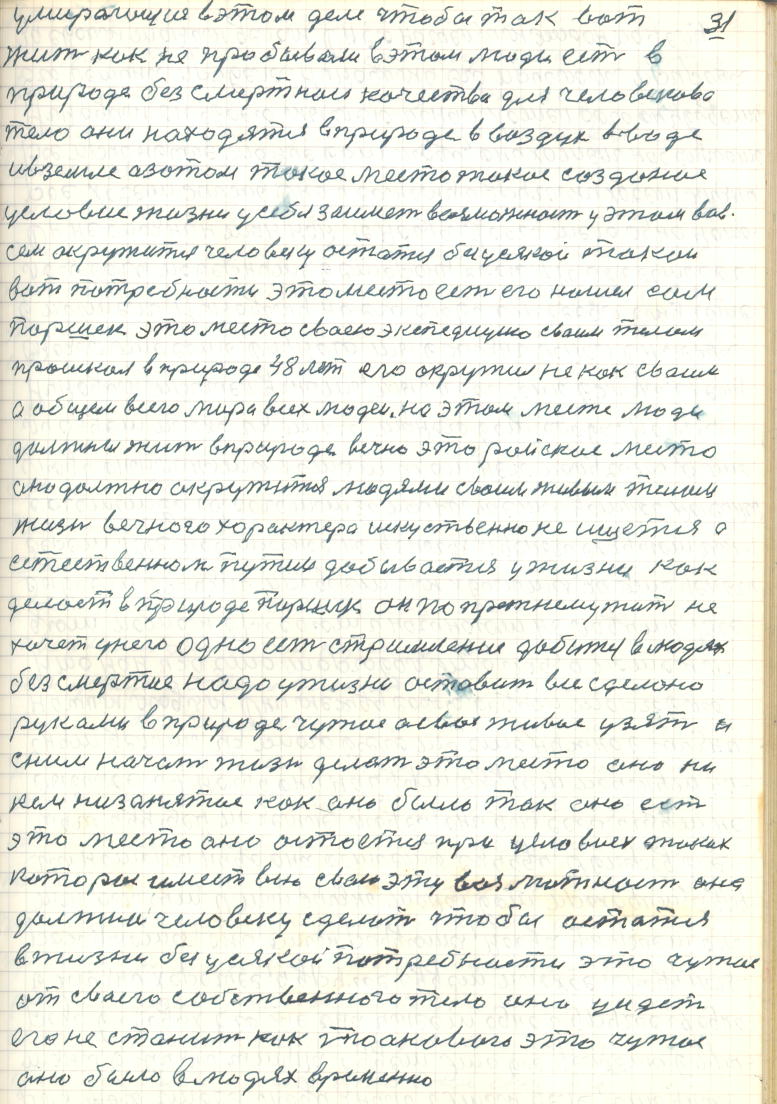 умирающие в этом деле чтобы так вот 31
жит как не пробывали в этом люди ест в
природе без смертнои качества для человекова
тело они находятся в природе в воздух в воде
и в земле азотом такое место такое создание
условие жизни у себя заимет возможност у этом вов.
сем окружится человеку остатся без усякой такои
вот потребности это место ест его нашел сам
Паршек это место своею экспедицию своим телом
прошкол в природе 48 лет его окружил не как своим
а общем всего мира всех людеи, на этом месте люди
должны жит в природе вечно это райское место
оно должно окружится людями своим живым телом
жизн вечного характера искуственно не ищется а
естественном путим добывается у жизни как
делает в природе Паршик он по прежнему жит не
хочет у него одно ест стримление добится в людях
без смертие надо у жизни оставит все сделано
руками в природе чужое а свое живое узят и
с ним начат жизн делат это место оно ни
кем низанятое как оно было так оно ест
это место оно остается при условиех таких
которые имеет всю свою эту возможност она
должна человеку сделат чтобы остатся
в жизни без усякой потребности это чужое
от своего собственного тело оно уидет
его не станит как такового это чужое
оно было в людях временно